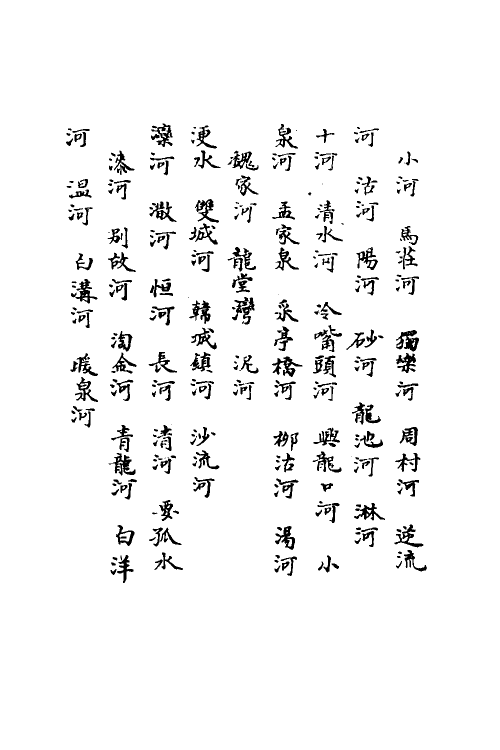 小河　馬莊河　獨樂河　周村河　逆流
河　沽河　陽河　砂河　龍池河　淋河
十河　清水河　冷嘴頭河　興龍口河　小
泉河　孟家泉　采亭橋河　柳沽河　湯河
魏家河　龍堂灣　泥河
浭水　雙城河　韓城鎮河　沙流河
灤河　澈河　恒河　長河　清河　要孤水
漆河　别故河　淘金河　青龍河　白洋
河　溫河　白溝河　暖泉河